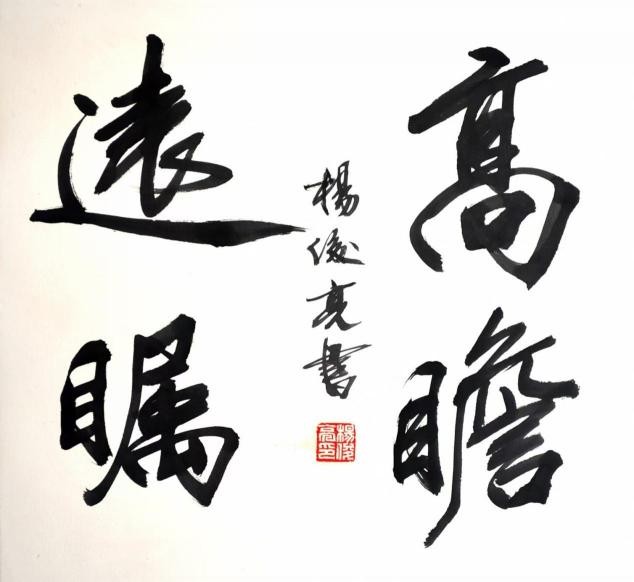 高瞻
遠瞩
楊俊亮書
楊俊亮印